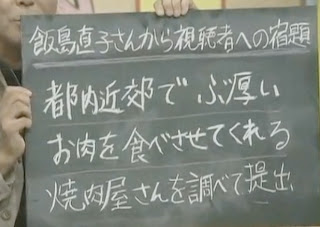 飯島直子さんから視聴者への宿題
都内近郊で ぶ厚い
お肉を食べさせてくれる
焼肉屋さんを調べて提出